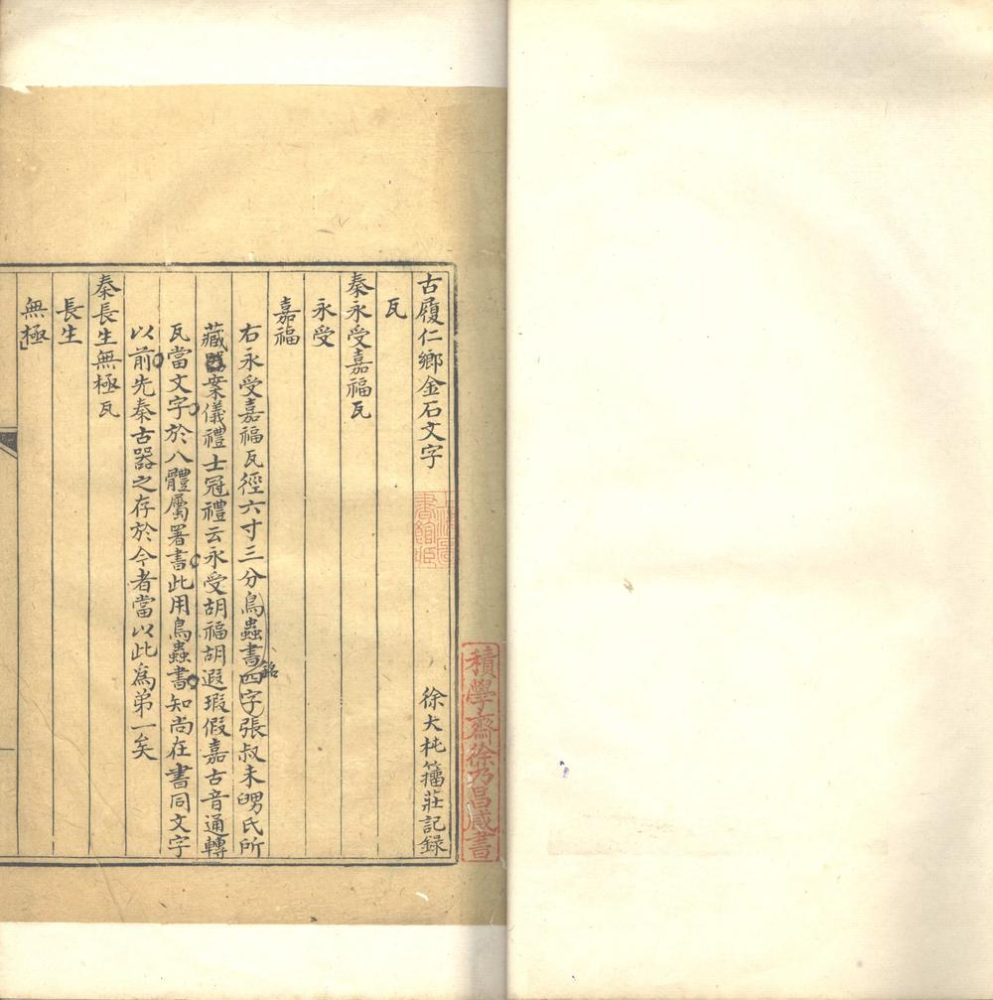 積學齋徐乃昌臧書
古履仁鄉金石文字
上海圖
書館藏
徐大杶籒莊記録
瓦
秦永受嘉福瓦
永受
嘉福
右永受嘉福瓦徑六寸三分鳥蟲書四字張叔未舅氏所
銘
藏案儀禮士冠禮云永受胡福胡遐瑕假嘉古音通轉
瓦當文字於八體屬署書此用鳥蟲書知尚在書同文字
以前先秦古器之存於今者當以此爲弟一矣
秦長生無極瓦
長生
無極